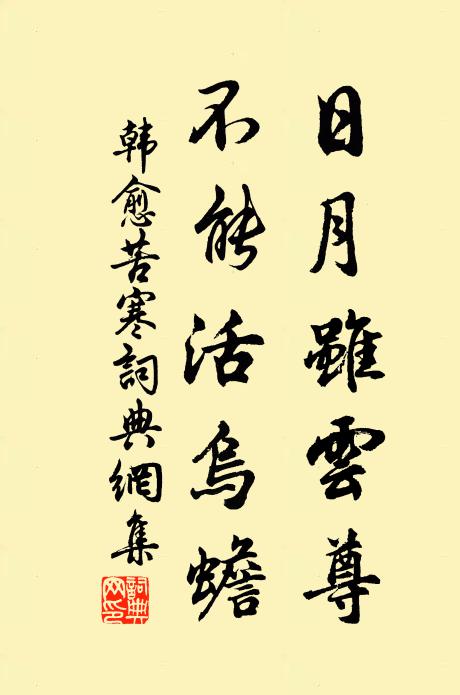 日月雖雲尊
不能活烏蟾
韓愈苦寒詞典網集
詞典網印